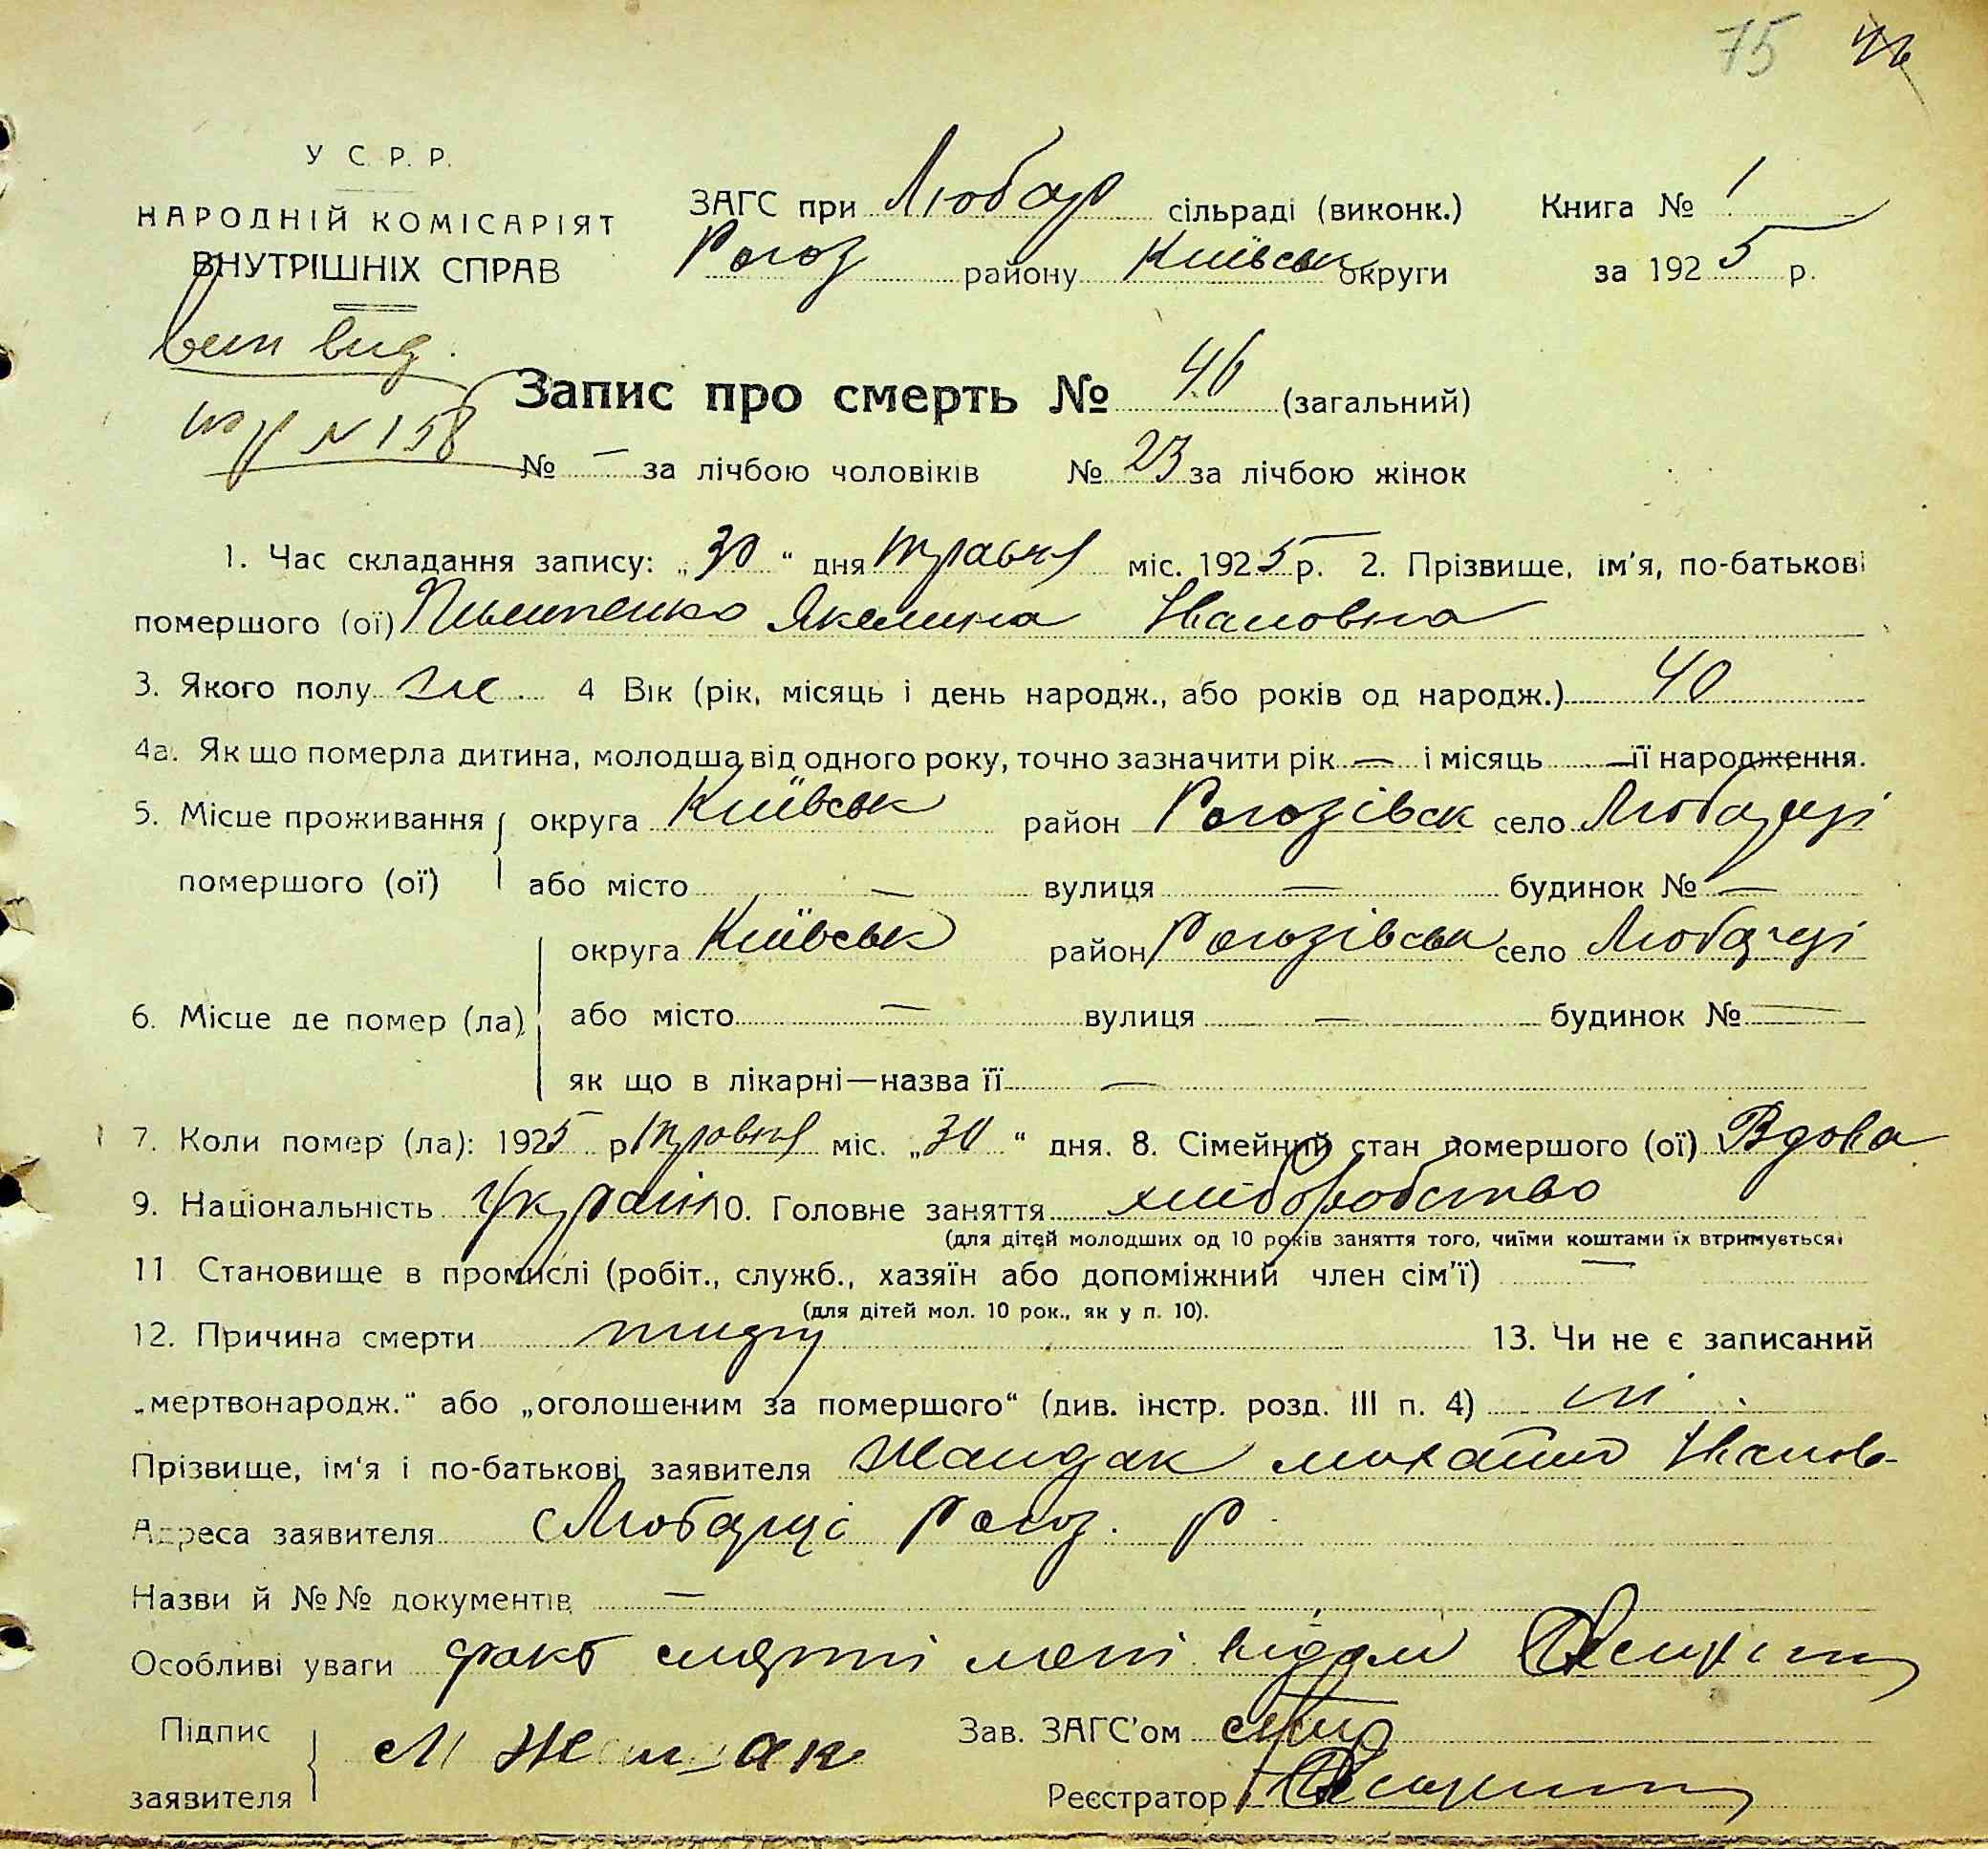 75 46
У С. Р. Р.
НАРОДНІЙ КОМІСАРІЯТ
ВНУТРІШНІХ СПРАВ
ЗАГС при Любар сільраді (виконк.) Книга № 1
Рогоз району Київськ округи за 1925 р.
вип вид.
№ 158
Запис про смерть № 46 (загальний)
№ — за лічбою чоловіків № 23 за лічбою жінок
1. Час складання запису: „30“ дня травня міс. 1925 р. 2. Прізвище, ім'я, по-батькові
помершого (ої) Якелина Івановна
3. Якого полу ж. 4 Вік (рік, місяць і день народж., або років од народж.) 40
4а. Як що померла дитина, молодша від одного року, точно зазначити рік — і місяць — її народження.
5. Місце проживання округа Київськ район Рогозівськ село Любарці
помершого (ої) або місто — вулиця — будинок № —
округа Київськ район Рогозівськ село Любарці
6. Місце де помер (ла) або місто — вулиця — будинок № —
як що в лікарні—назва її —
7. Коли помер (ла): 1925 р травня міс. „30“ дня. 8. Сімейний стан помершого (ої) Вдова
9. Національність Україн 10. Головне заняття хліборобство
(для дітей молодших од 10 років заняття того, чиїми коштами їх втримується)
11 Становище в промислі (робіт., служб., хазяїн або допоміжний член сім'ї) —
(для дітей мол. 10 рок., як у п. 10).
12. Причина смерти 13. Чи не є записаний
„мертвонародж.“ або „оголошеним за помершого“ (див. інстр. розд. III п. 4) ні.
Прізвище, ім'я і по-батькові заявителя Жандак Михайло Іванов
Адреса заявителя с Любарці Рогоз. р.
Назви й №№ документів —
Особливі уваги факт смерти мені відом
Підпис
заявителя М Жандак
Зав. ЗАГС'ом
Реєстратор